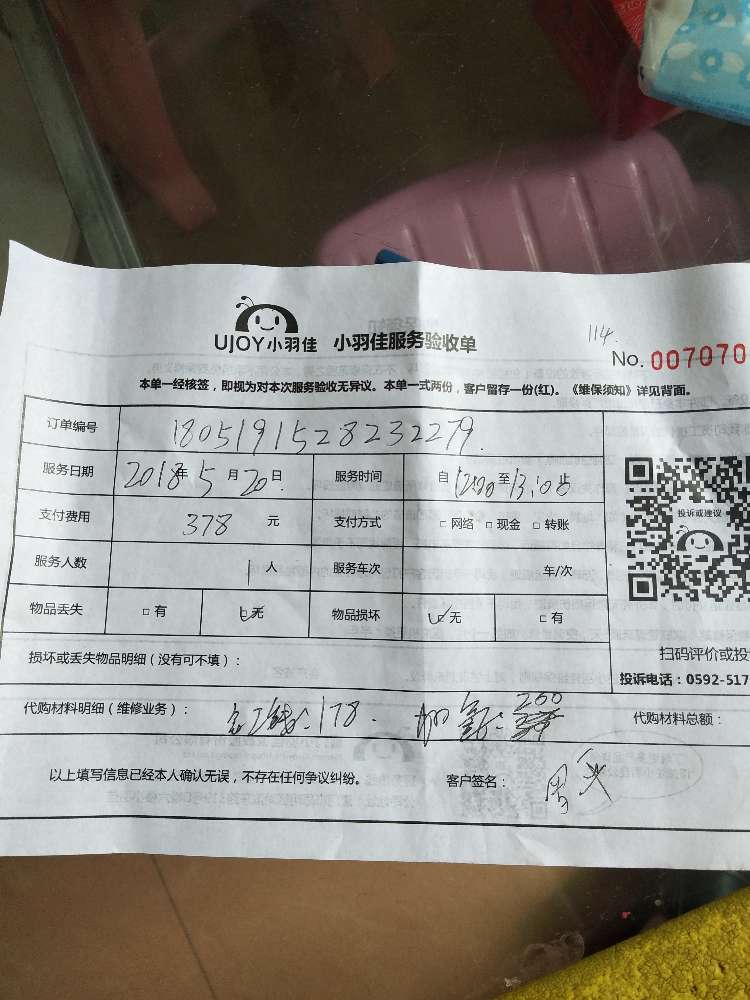 UJOY小羽佳 小羽佳服务验收单
114.
No. 007070
本单一经核签，即视为对本次服务验收无异议。本单一式两份，客户留存一份(红)。《维保须知》详见背面。
订单编号 1805191528232279
服务日期 2018年5月20日 服务时间 自1200至13:00止
支付费用 378元 支付方式 □网络 □现金 □转账
投诉或建议
服务人数 1人 服务车次 车/次
物品丢失 □有 ☑无 物品损坏 ☑无 □有
损坏或丢失物品明细（没有可不填）：
扫码评价或投
投诉电话：0592-517
代购材料明细（维修业务）： 178. 加 200
代购材料总额：
以上填写信息已经本人确认无误，不存在任何争议纠纷。 客户签名：